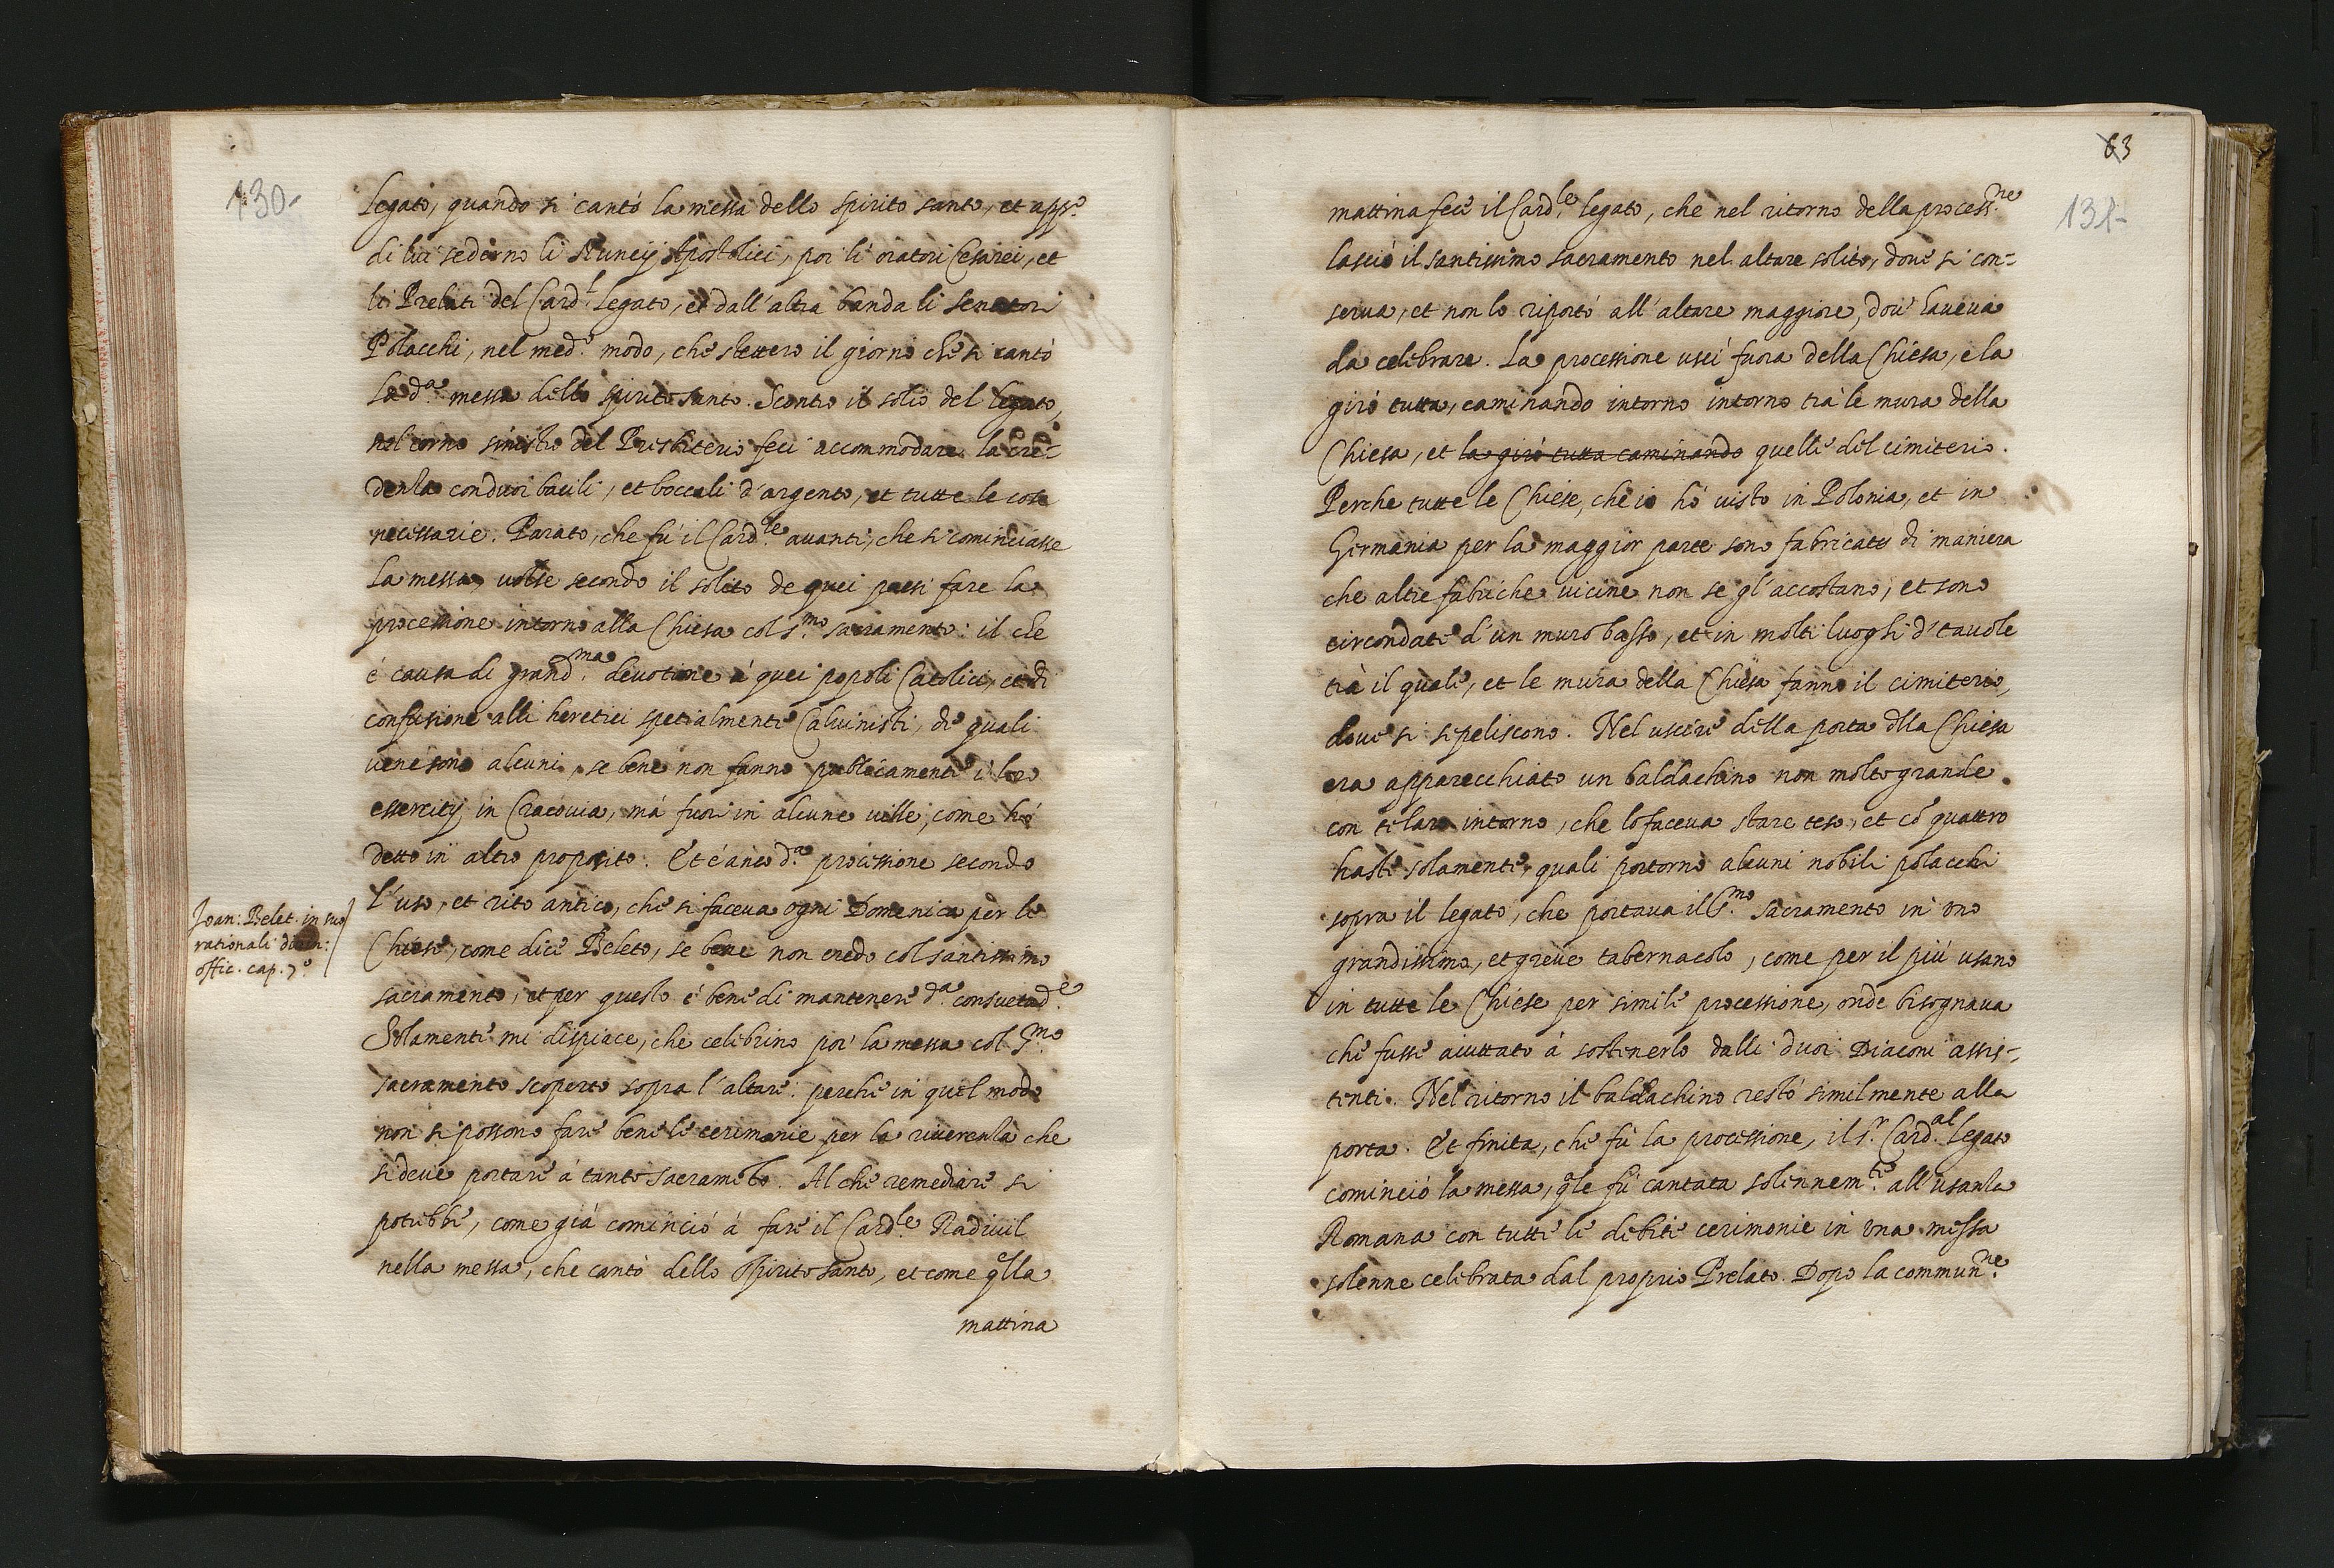 130-
Legato, quando si cantó la messa dello spirito santo, et app.º
di lui sederno li Nuncij Apostolici, poi li oratori Cesarei, et
li Prelati del Card.l Legato, et dall'altra banda li Senatori
Polacchi, nel med.º modo, che stettero il giorno che si cantò
la d.a messa dello spirito santo. Scontro il solio del Legato,
nel corno sinistro del Presbiterio feci accommodare la cre=
denza con duoi bacili, et boccali d'argento, et tutte le cose
necessarie. Parato, che fú il Card.le auanti, che si cominciasse
la messa, uolse secondo il solito de quei paesi fare la
processione intorno alla Chiesa col S.mo sacramento: il che
é causa di grand.ma deuotione á quei popoli Catolici, et di
confusione alli heretici spetialmente Caluinisti, de quali
ue ne sono alcuni, se bene non fanno publicamente i loro
essercitij in Cracouia, má fuori in alcune uille, come hó
detto in altro proposito. Et é anco d.a processione secondo
l'uso, et rito antico, che si faceua ogni Domenica per le
Joan: Belet. in suo
rationali diuin:
offic. cap. 7.º
Chiese, come dice Beleto, se bene non credo col santissimo
sacramento, et per questo é bene di mantenere d.a consuetud.e
Solamente mi dispiace, che celebrino poi la messa col S.mo
sacramento scoperto sopra l'altare: perche in quel modo
non si possono fare bene le cerimonie per la riuerenza che
si deue portare á tanto Sacramẽto. Al che remediare si
potrebbe, come giá cominció á fare il Card.le Radiuil
nella messa, che cantó dello Spirito Santo, et come q̃lla
mattina
63
131-
mattina fece il Card.le legato, che nel ritorno della process.ne
lasció il santissimo sacramento nel altare solito, doue si con=
serua, et non lo riportó all'altare maggiore, dou' haueua
da celebrare. La processione uscí fuora della Chiesa, e la
giró tutta, caminando intorno intorno trà le mura della
Chiesa, et la giró tutta caminando quelle del cimiterio.
Perche tutte le Chiese, che io hó uisto in Polonia, et in
Germania per la maggior parte sono fabricate di maniera
che altre fabriche uicine non se gl'accostano, et sono
circondate d'un muro basso, et in molti luoghi d'tauole
trà il quale, et le mura della Chiesa fanno il cimiterio,
doue si sepeliscono. Nel uscire della porta dlla Chiesa
era apparecchiato un baldachino non molto grande
con telaro intorno, che lo faceua stare teso, et cõ quattro
haste solamente, quali portorno alcuni nobili polacchi
sopra il legato, che portaua il S.mo Sacramento in vno
grandissimo, et greue tabernacolo, come per il piú usano
in tutte le Chiese per simile processione, onde bisognaua
che fusse aiuttato á sostenerlo dalli duoi Diaconi assis=
tenti. Nel ritorno il baldachino restó similmente alla
porta. Et finita, che fú la processione, il S.r Card.al Legato
cominció la messa, q̃le fú cantata solennem.te all'usanza
Romana con tutte le debite cerimonie in vna messa
solenne celebrata dal proprio Prelato. Dopo la commun.ne